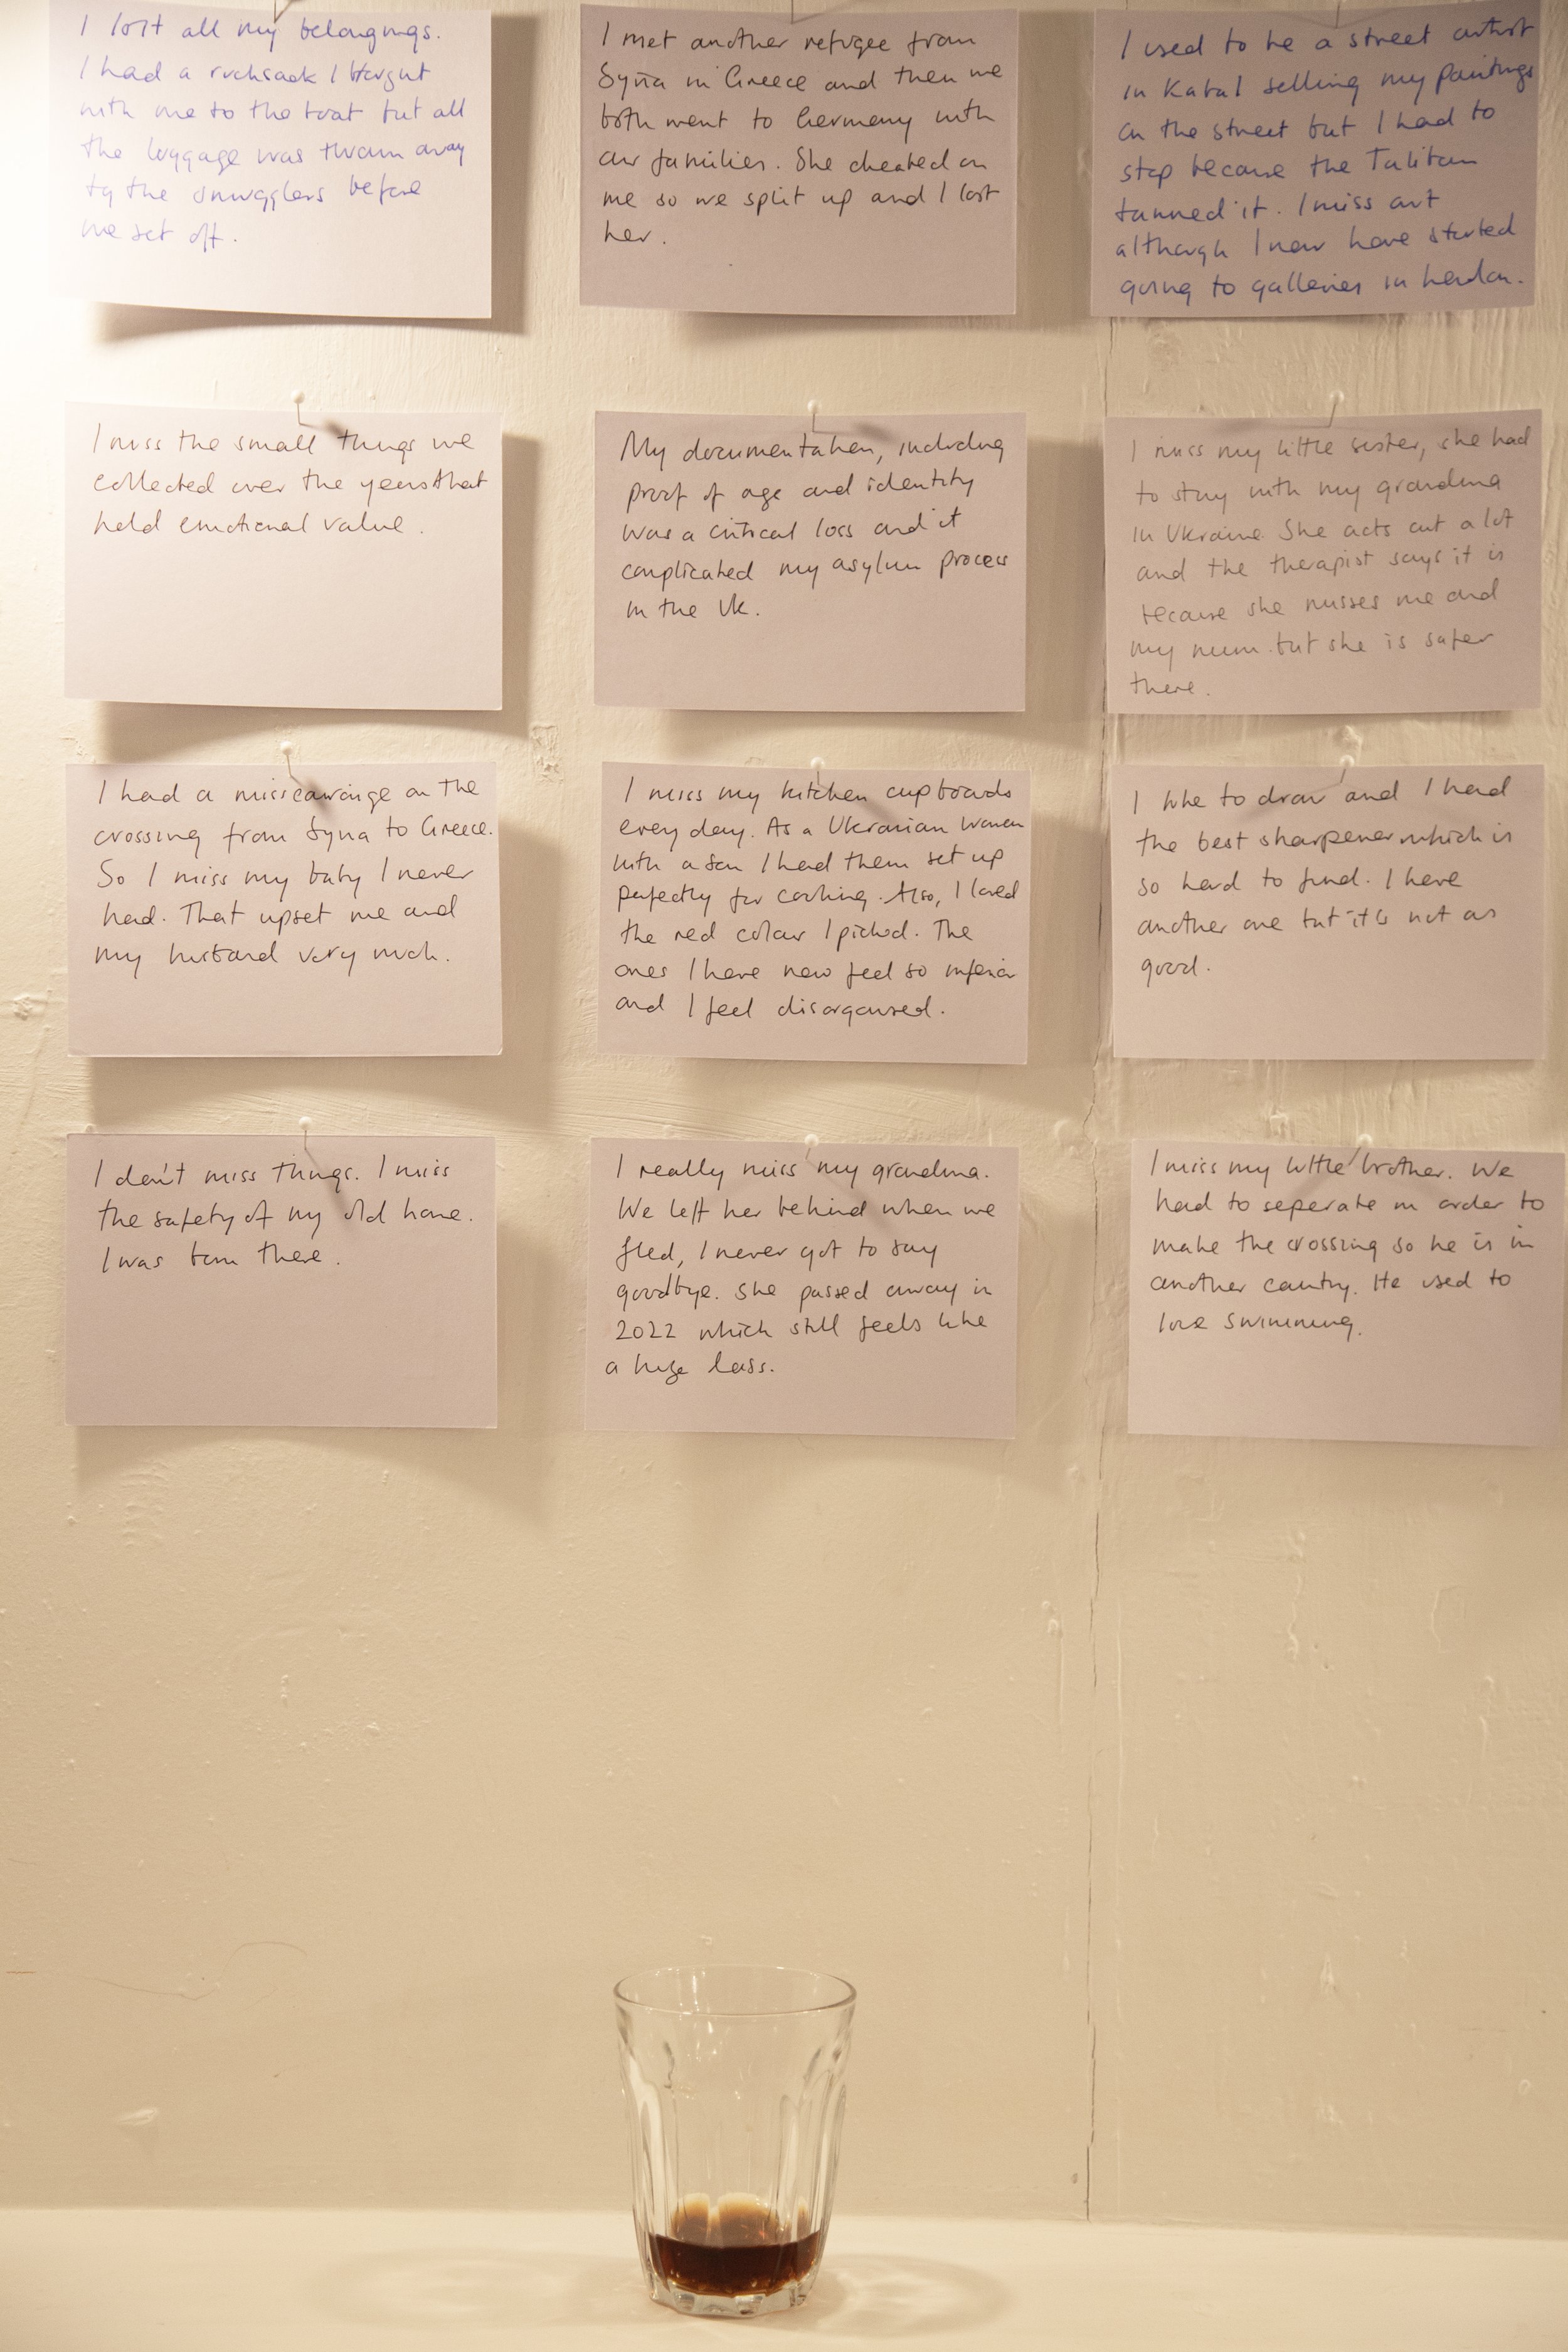 I lost all my belongings.
I had a rucksack I brought
with me to the boat but all
the luggage was thrown away
by the smugglers before
we set off.
I met another refugee from
Syria in Greece and then we
both went to Germany with
our families. She cheated on
me so we split up and I lost
her.
I used to be a street artist
in Kabul selling my paintings
on the street but I had to
stop because the Taliban
banned it. I miss art
although I now have started
going to galleries in London.
I miss the small things we
collected over the years that
held emotional value.
My documentation, including
proof of age and identity
was a critical loss and it
complicated my asylum process
in the UK.
I miss my little sister, she had
to stay with my grandma
in Ukraine. She acts out a lot
and the therapist says it is
because she misses me and
my mum but she is safer
there.
I had a misscarraige on the
crossing from Syria to Greece.
So I miss my baby I never
had. That upset me and
my husband very much.
I miss my kitchen cupboards
every day. As a Ukranian woman
with a son I had them set up
perfectly for cooking. Also, I loved
the red colour I picked. The
ones I have now feel so inferior
and I feel disorganised.
I like to draw and I had
the best sharpener which is
so hard to find. I have
another one but it is not as
good.
I don't miss things. I miss
the safety of my old home.
I was born there.
I really miss my grandma.
We left her behind when we
fled, I never got to say
goodbye. She passed away in
2022 which still feels like
a huge loss.
I miss my little brother. We
had to seperate in order to
make the crossing so he is in
another country. He used to
love swimming.